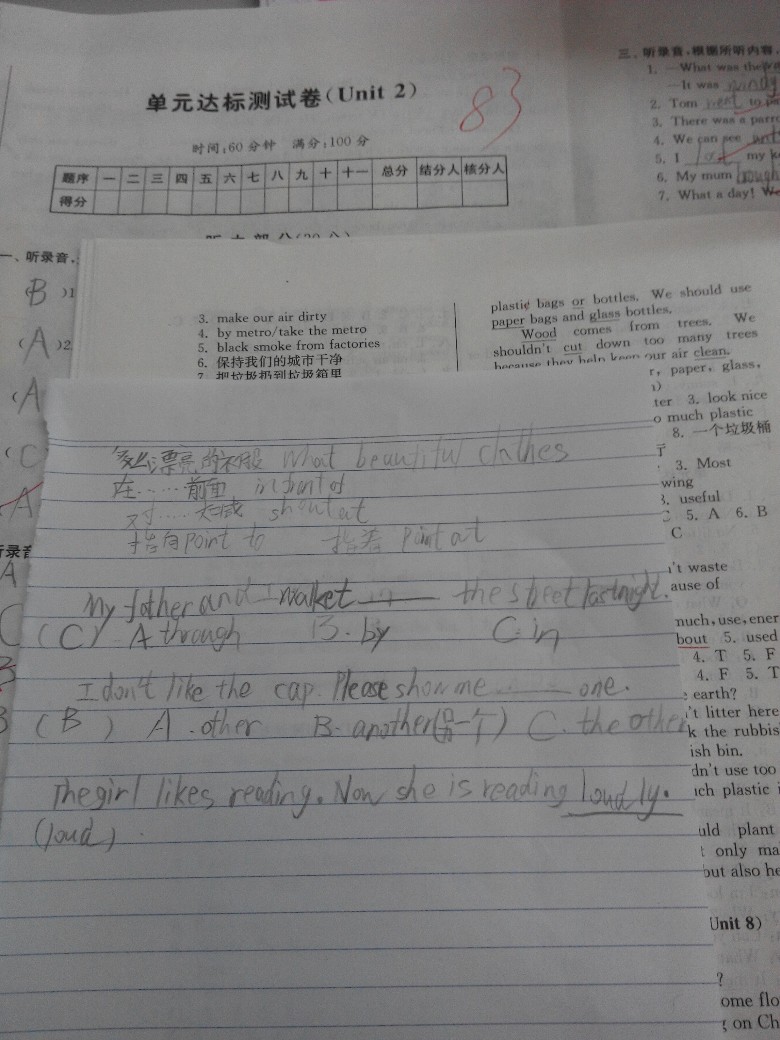 单元达标测试卷(Unit 2)
83
时间:60分钟 满分:100分
题序 一 二 三 四 五 六 七 八 九 十 十一 总分 结分人 核分人
得分
一、听录音,
(B )1
(A )2
(A
(C
A
听录音
A
C
三、听录音,根据所听内容,
1. —What was the
—It was windy
2. Tom went to
3. There was a parr
4. We can see
5. I lost my k
6. My mum
7. What a day! We
3. make our air dirty
4. by metro/take the metro
5. black smoke from factories
6. 保持我们的城市干净
7. 把垃圾扔到垃圾箱里
plastic bags or bottles. We should use
paper bags and glass bottles.
Wood comes from trees. We
shouldn't cut down too many trees
because they help keep our air clean.
r, paper, glass,
ter 3. look nice
o much plastic
8. 一个垃圾桶
3. Most
wing
3. useful
5. A 6. B
C
n't waste
ause of
much, use, ener
bout 5. used
4. T 5. F
4. F 5. T
earth?
't litter here
k the rubbis
ish bin.
dn't use too
uch plastic
uld plant
t only ma
but also he
Unit 8)
?
ome flo
on Ch
多么漂亮的衣服 What beautiful clothes
在……前面 in front of
对……大喊 shout at
指向 point to 指着 point at
My father and I walket ____ the street last night.
(C) A through B. by C. in
I don't like the cap. Please show me ____ one.
(B ) A. other B. another(另一个) C. the other
The girl likes reading. Now she is reading loudly.
(loud).